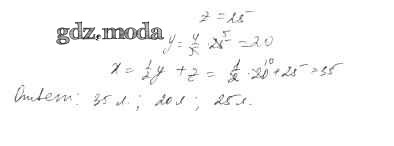 z = 25
gdz.moda
y = 4/5 · 25 = 20
x = 1/2 y + z = 1/2 · 20 + 25 = 35
Ответ: 35 л.; 20 л; 25 л.